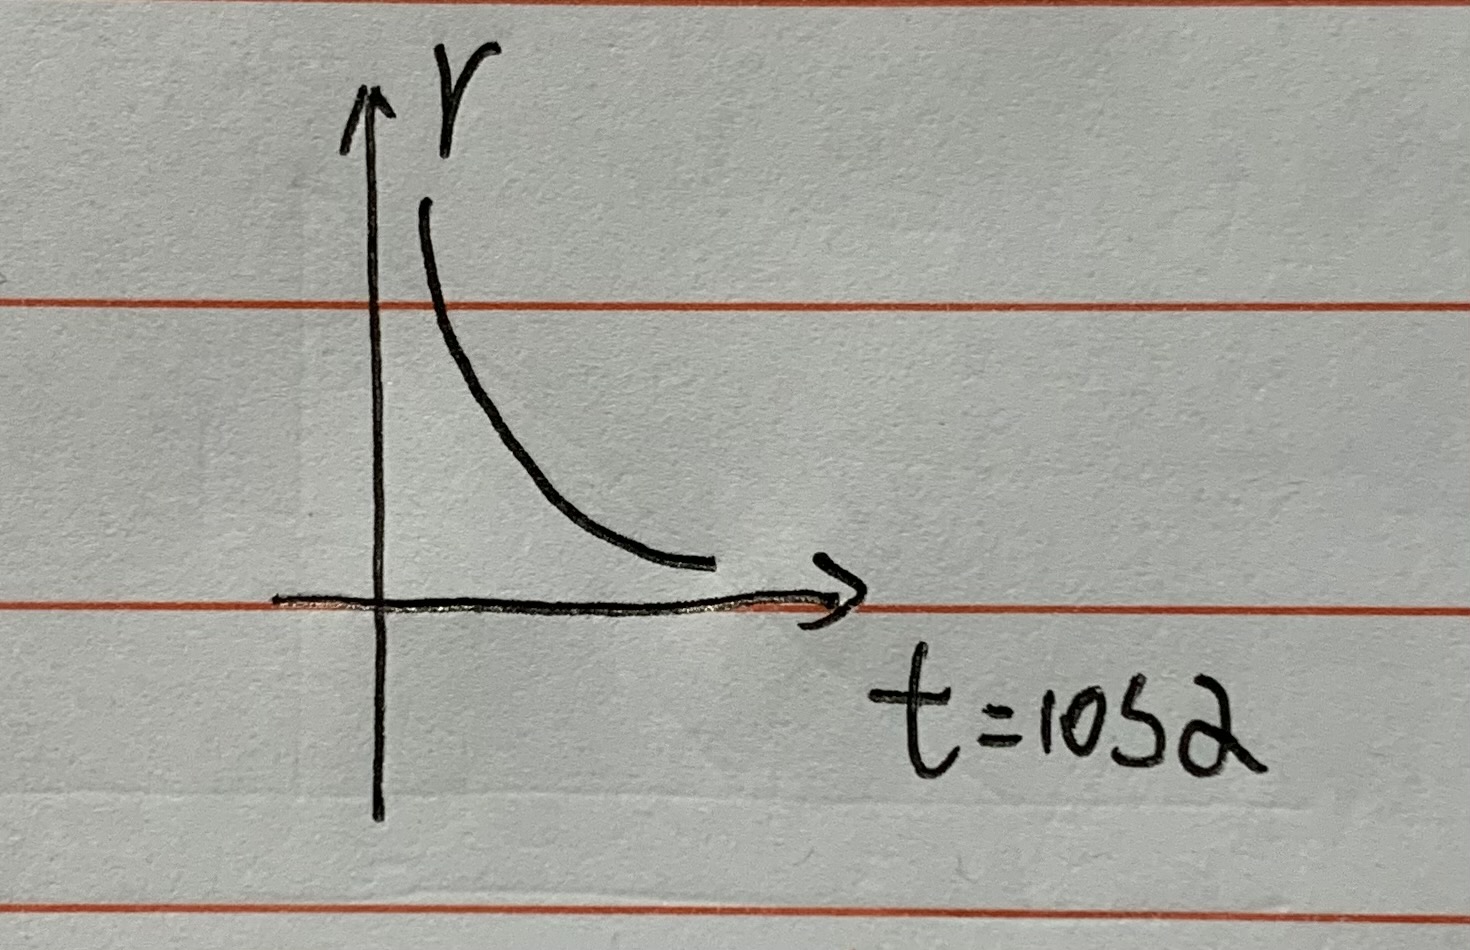 r
t=1052